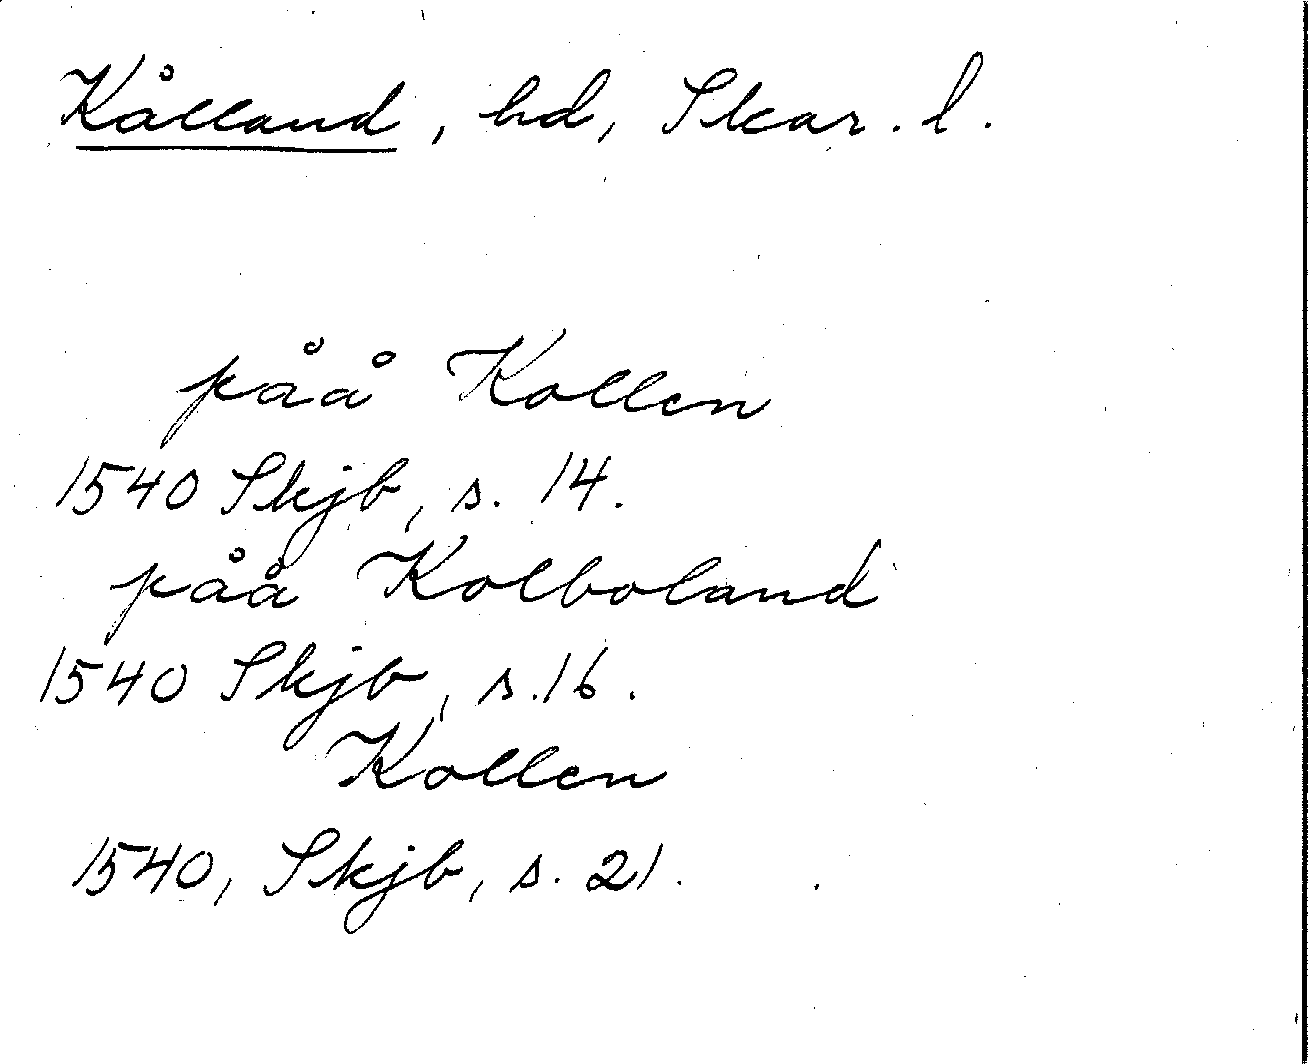 Kålland, hd, Skar. l.
påå Kollen
1540 Skjb, s. 14.
påå Kolboland
1540 Skjb, s. 16.
Kollen
1540, Skjb, s. 21.